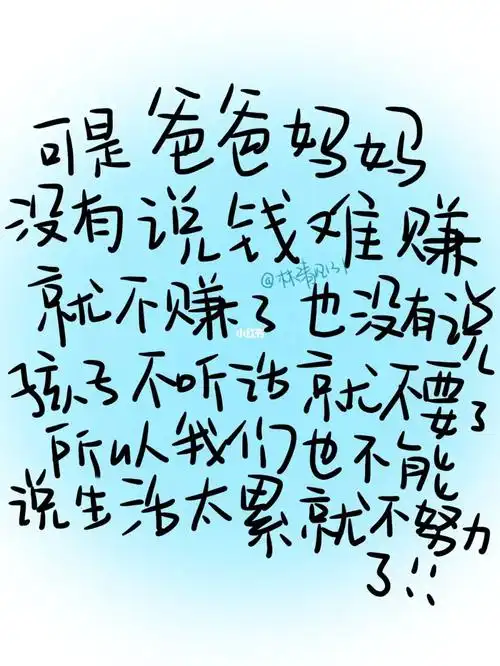 可是爸爸妈妈
没有说钱难赚
就不赚了也没有说
孩子不听话就不要了
所以我们也不能
说生活太累就不努力
了!!
小红书